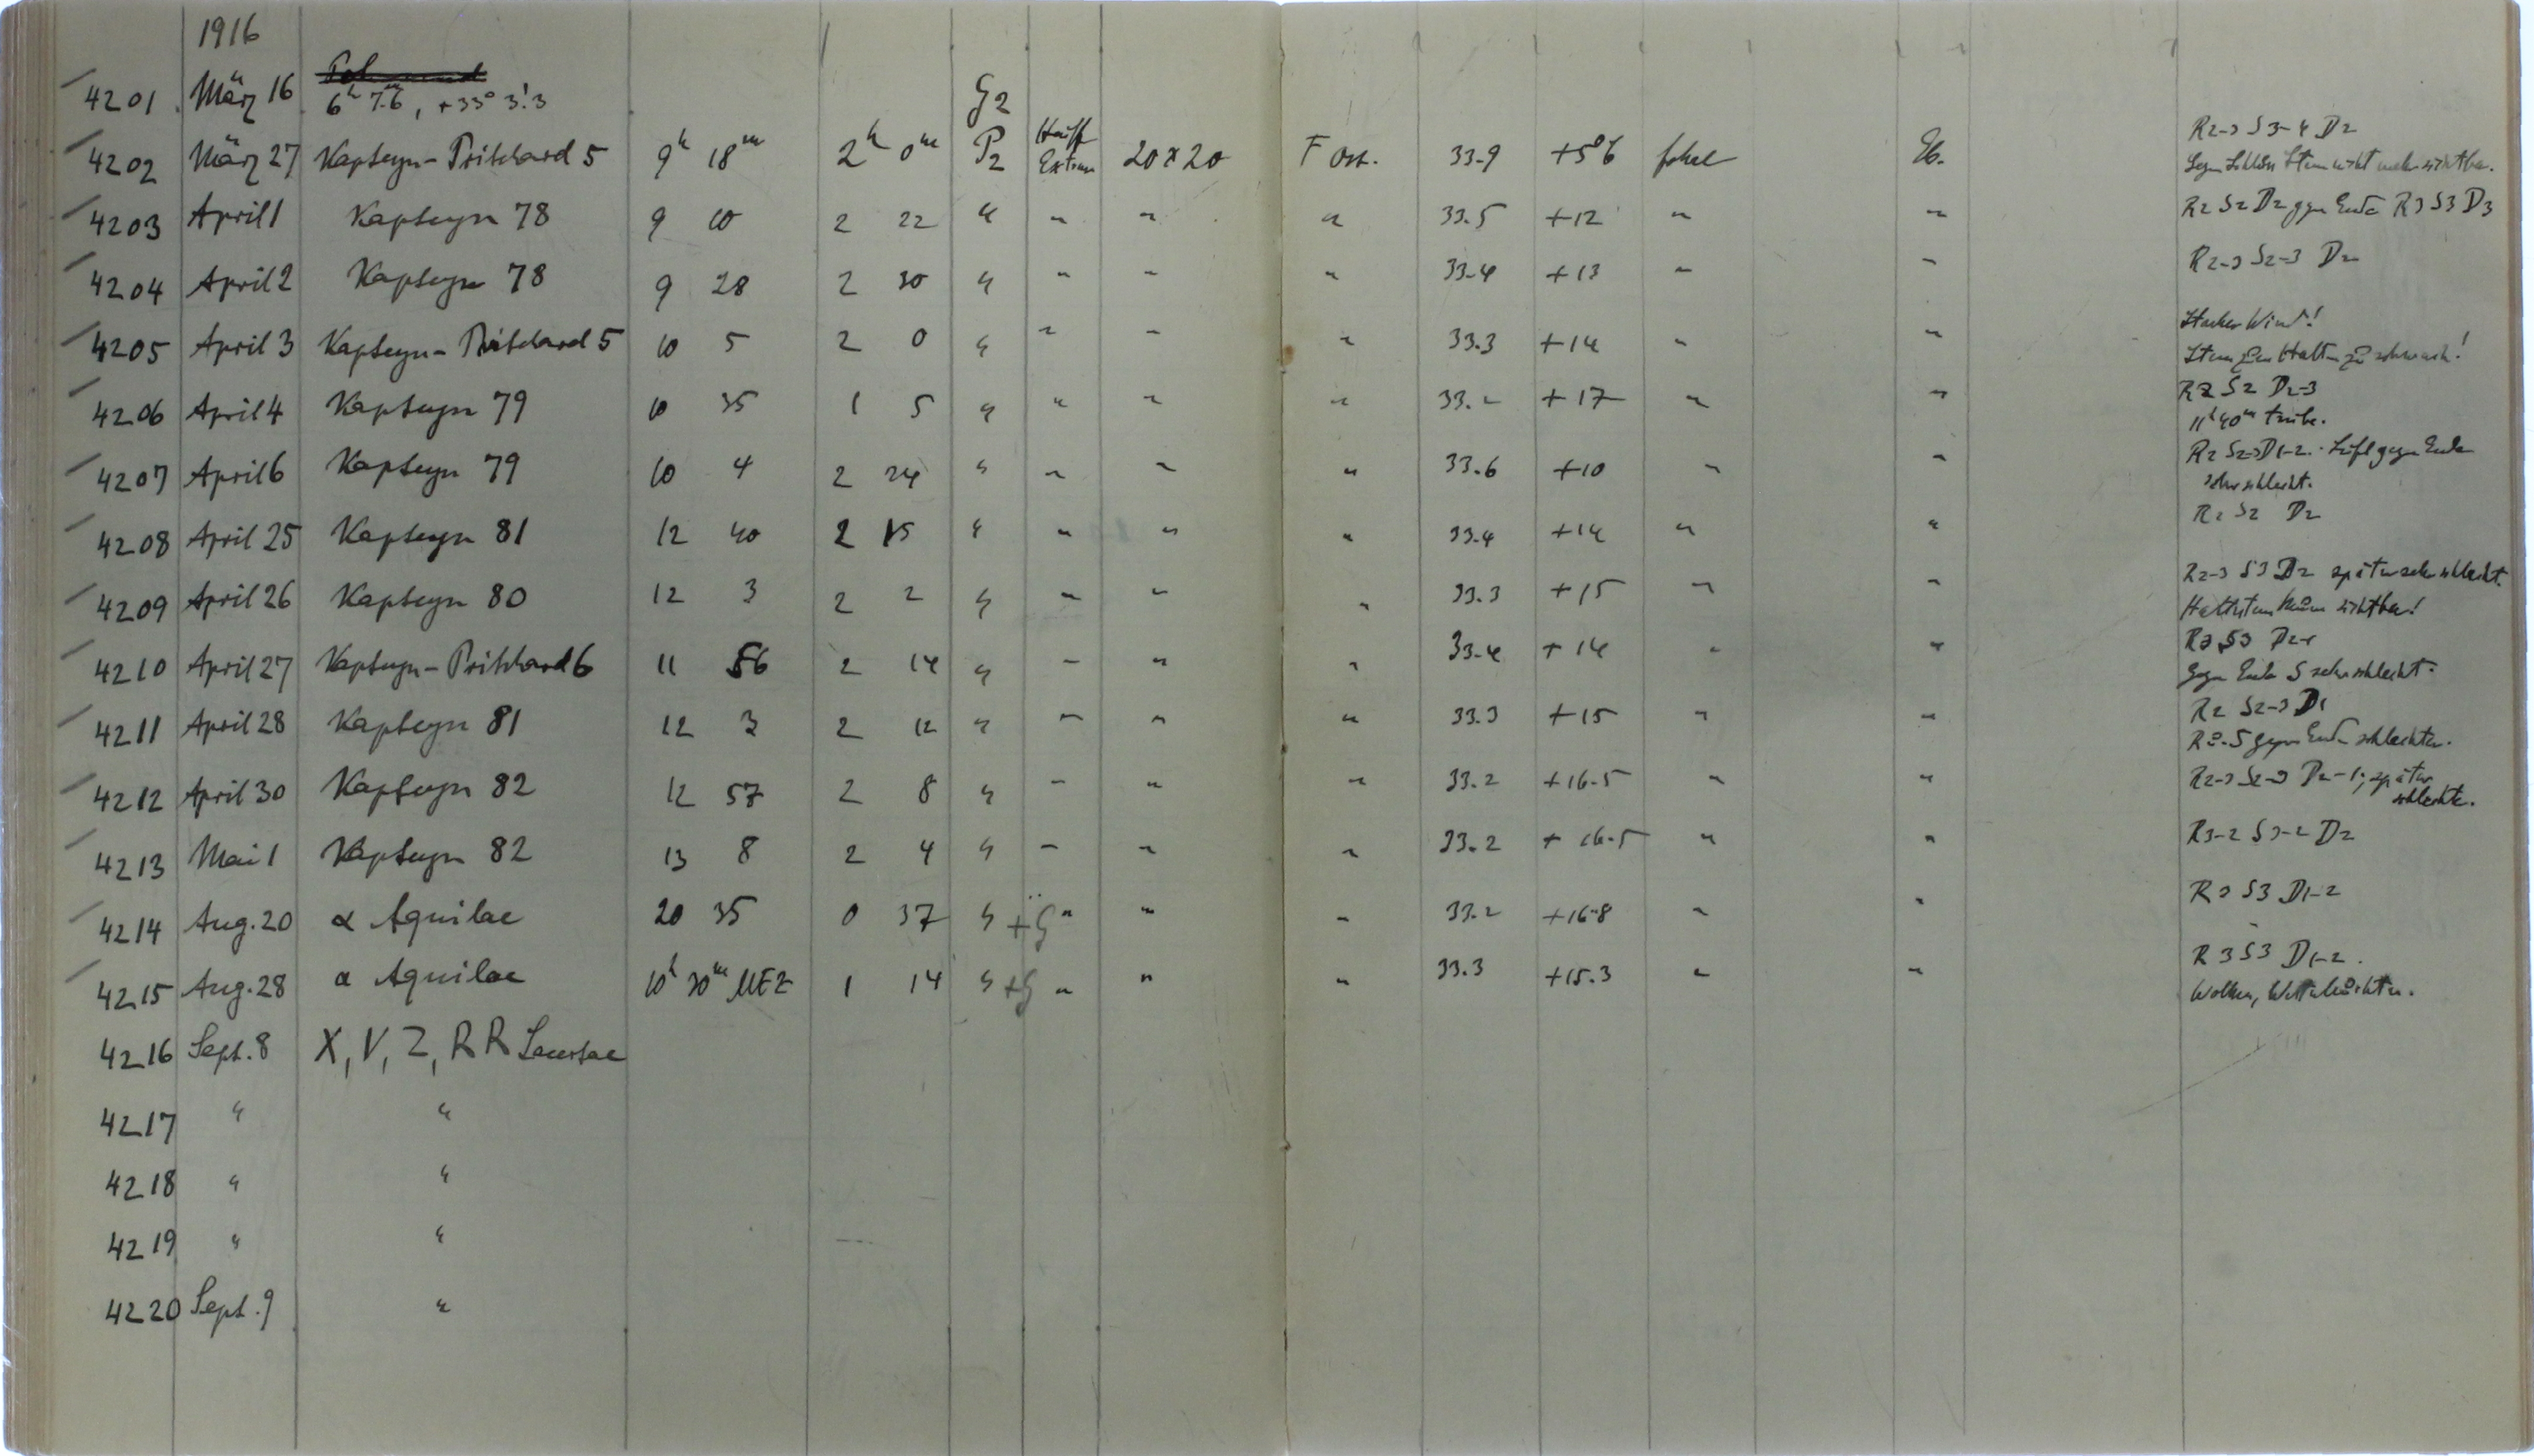 1916
4201 März 16 6ʰ 7ᵐ.6, +33° 3!3 G2
4202 März 27 Kapteyn-Pritchard 5 9ʰ 18ᵐ 2ʰ 0ᵐ P2 Hauff Extrem 20x20 F Ost. 33.9 +5°6 fokal Eb. R2-3 S3-4 D2
Gegen Schluss Stern nicht mehr sichtbar.
4203 April 1 Kapteyn 78 9 10 2 22 " " " " 33.5 +12 " " R2 S2 D2 gegen Ende R3 S3 D3
4204 April 2 Kapteyn 78 9 28 2 30 " " " " 33.4 +13 " " R2-3 S2-3 D2
4205 April 3 Kapteyn-Pritchard 5 10 5 2 0 " " " " 33.3 +14 " " Starker Wind!
Stern zum Halten zu schwach!
4206 April 4 Kapteyn 79 10 35 1 5 " " " " 33.2 +17 " " R2 S2 D2-3
11ʰ40ᵐ trübe.
4207 April 6 Kapteyn 79 10 4 2 24 " " " " 33.6 +10 " " R2 S2-3 D1-2. Luft gegen Ende
sehr schlecht.
4208 April 25 Kapteyn 81 12 40 2 15 " " " " 33.4 +14 " " R2 S2 D2
4209 April 26 Kapteyn 80 12 3 2 2 " " " " 33.3 +15 " " R2-3 S3 D2 später sehr schlecht.
Haltstern kaum sichtbar!
4210 April 27 Kapteyn-Pritchard 6 11 56 2 14 " " " " 33.4 +14 " " R3 S3
Gegen Ende S sehr schlecht.
4211 April 28 Kapteyn 81 12 3 2 12 " " " " 33.3 +15 " " R2 S2-3 D1
R u. S gegen Ende schlechter.
4212 April 30 Kapteyn 82 12 57 2 8 " " " " 33.2 +16.5 " " R2-3 S2-3 D2-1; später
schlechter.
4213 Mai 1 Kapteyn 82 13 8 2 4 " " " " 33.2 +16.5 " " R3-2 S3-2 D2
4214 Aug. 20 α Aquilae 20 35 0 37 " +G " " " 33.2 +16.8 " " R3 S3 D1-2
4215 Aug. 28 α Aquilae 10ʰ 30ᵐ MEZ 1 14 " +G " " " 33.3 +15.3 " " R3 S3 D1-2.
Wolken, Wetterleuchten.
4216 Sept. 8 X, V, Z, RR Lacertae
4217 " "
4218 " "
4219 " "
4220 Sept. 9 "